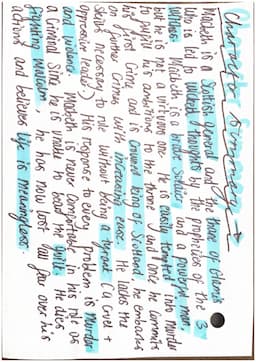 Character Summary →
Macbeth is a Scottish general and the thane of Glamis
who is led to wicked thoughts by the prophecies of the 3
witches. Macbeth is a brave soldier and a powerful man,
but he is not a virtuous one. He is easily tempted into murder
to fulfil his ambitions to the throne and once he commits
his first crime and is crowned king of Scotland, he embarks
on further crimes with increasing ease. He lacks the
skills necessary to rule without being a tyrant (a cruel +
oppressive leader). His response to every problem is murder
and violence. Macbeth is never comfortable in his role as
a criminal since he is unable to bear the guilt. He dies
fighting he has now lost all fear over his
actions and believes life is meaningless.